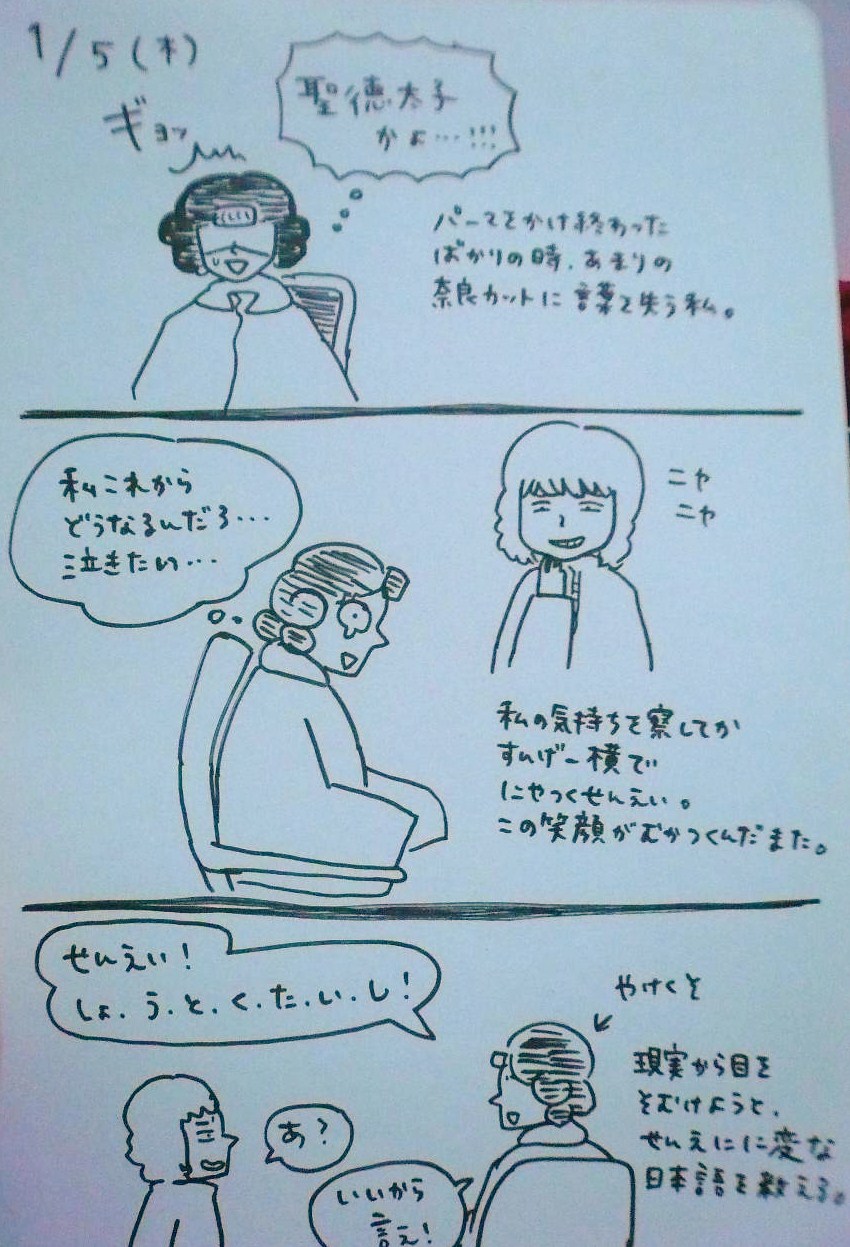 1/5(木)
ギョッ
聖徳太子
かよ…!!!
パーマをかけ終わった
ばかりの時、あまりの
奈良カットに言葉を失う私。
私これから
どうなるんだろ…
泣きたい…
ニヤ
ニヤ
私の気持ちを察してか
すんげー横で
にやつくせんえい。
この笑顔がむかつくんだまた。
せんえい!
しょ.う.と.く.た.い.し!
やけくそ
現実から目を
そむけようと、
せんえにに変な
日本語を教える。
あ?
いいから
言え!